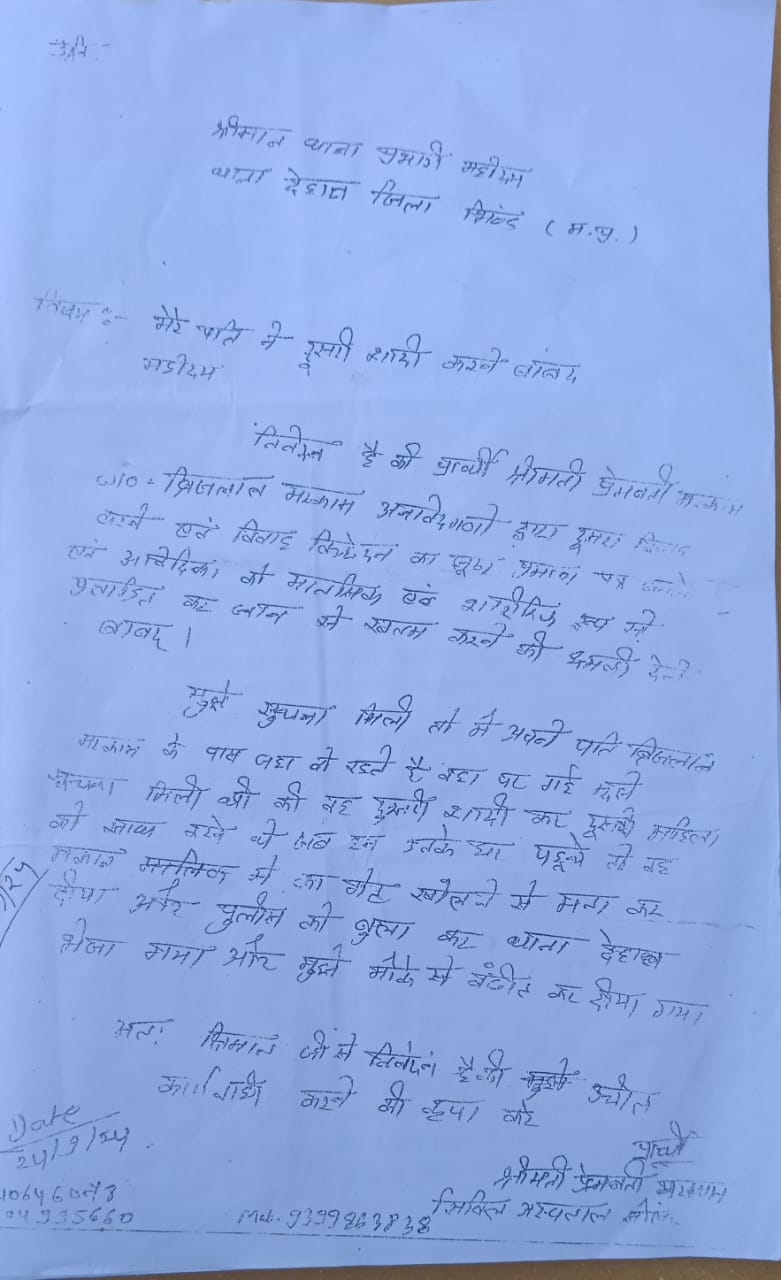 प्रति-
श्रीमान थाना प्रभारी महोदय
थाना देहात जिला भिंड (म.प्र.)
विषय :- मेरे पति ने दूसरी शादी करने बाबद
महोदय
निवेदन है की प्रार्थी श्रीमती प्रेमवती मरकाम
w/o - ब्रिजलाल मरकाम अनावेदगणो द्वारा दूसरा विवाह
करने एवं विवाह का झूठा प्रमाण पत्र
एवं आवेदिका को मानसिक एवं शारीरिक रूप से
प्रताड़ित कर जान से खतम करने की धमकी देने
बाबद ।
मुझे सुचना मिली तो मैं अपने पति ब्रिजलाल
मरकाम के पास जहा वो रहते है वहा पर गई मुझे
सुचना मिली थी की वह दुसरी शादी कर दुसरी महिला
को साथ रखे थे जब हम उनके घर पहुचे तो वह
मकान मालिक से का गेट खोलने से मना कर
दीया और पुलीस को बुला कर थाना देहात
भेजा गया और मुझे मौके से वंचीत कर दीया गया
अतः श्रीमान जी से निवेदन है की मुझे उचीत
कार्यवाही करने की कृपा करे
प्रार्थी
श्रीमती प्रेमवती मरकाम
सिविल अस्पताल
Date
24/9/24
Mob. 9399863838